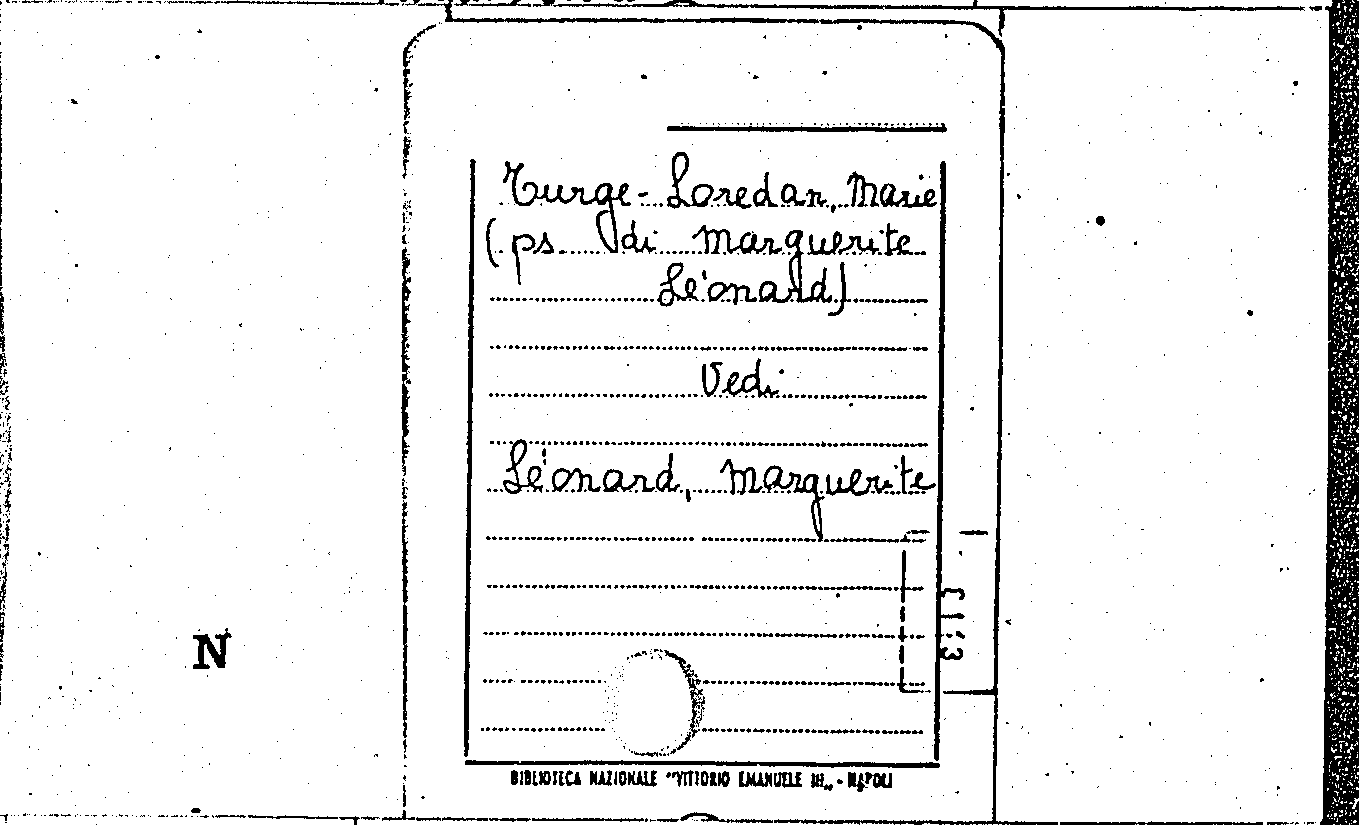 Turge-Loredan, Marie
(ps. di Marguerite
Léonard)
Vedi
Léonard, Marguerite
N
BIBLIOTECA NAZIONALE "VITTORIO EMANUELE III" - NAPOLI